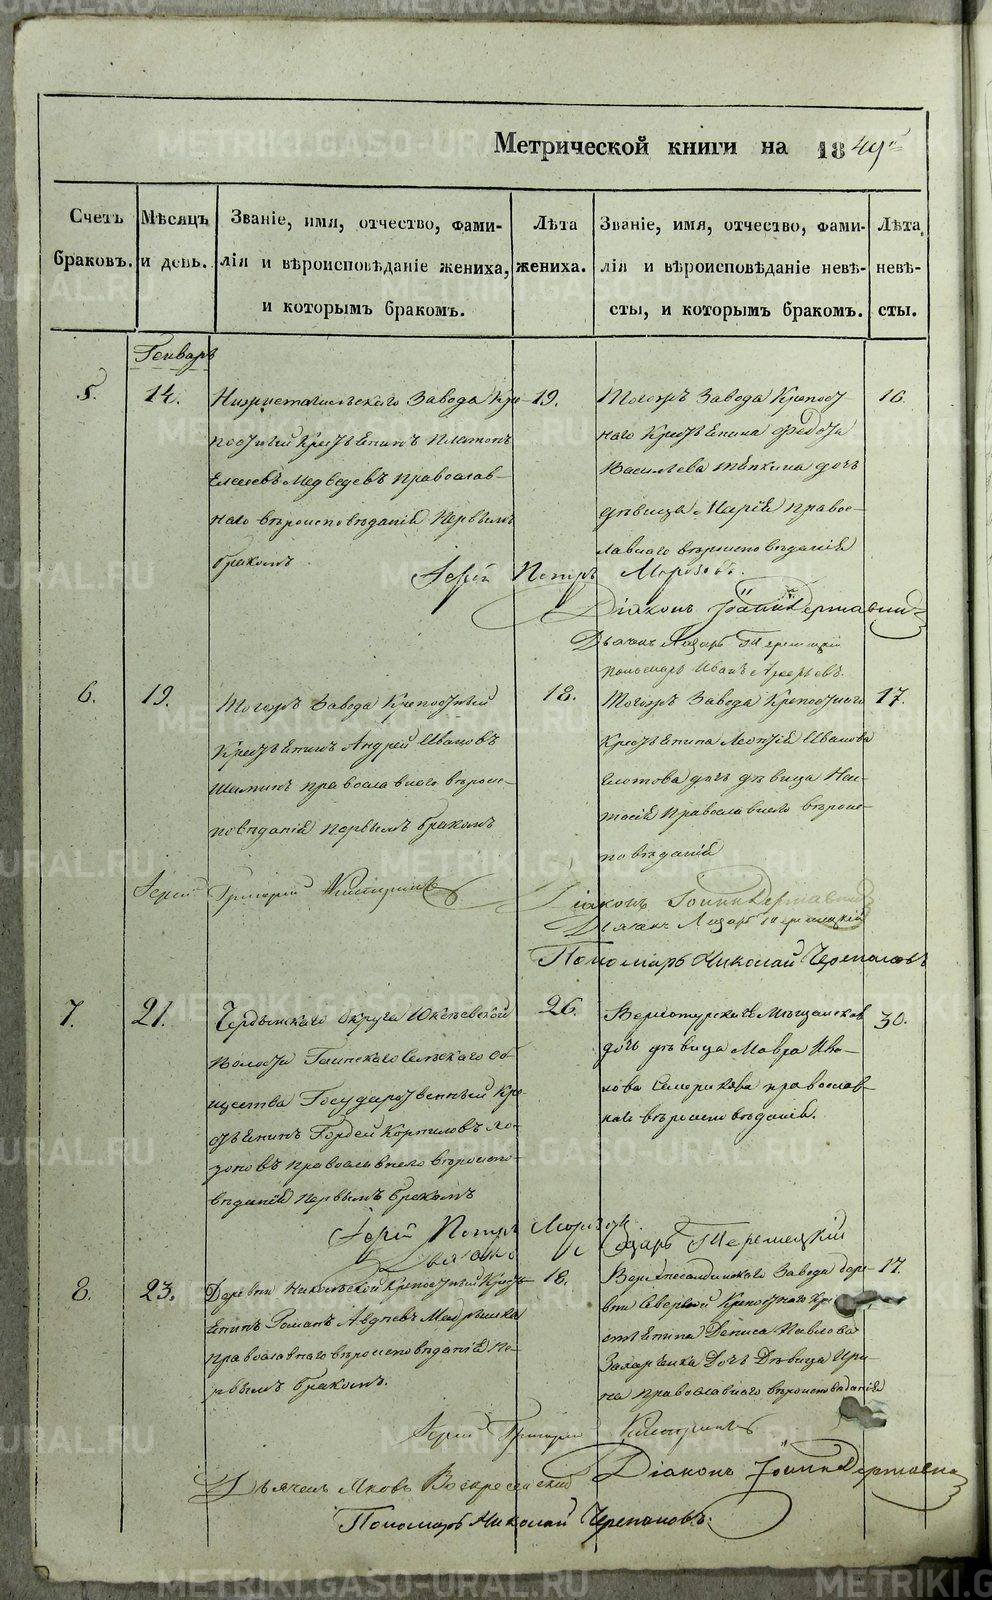 Метрической книги на 1849 г.
Счетъ браковъ.
Мѣсяцъ и день.
Званіе, имя, отчество, фами-
лія и вѣроисповѣданіе жениха,
и которымъ бракомъ.
Лѣта
жениха.
Званіе, имя, отчество, фами-
лія и вѣроисповѣданіе невѣ-
сты, и которымъ бракомъ.
Лѣта
невѣ-
сты.
Генварь
5.
14.
Нижнетагильскаго Завода Крѣ-
постный Крестьянинъ Платонъ
Елисеевъ Медведевъ православ-
наго вѣроисповѣданія первымъ
бракомъ.
19.
Тогожъ Завода Крепост
наго Крестьянина Федота
Васильева дочь
дѣвица Марія право-
славнаго вѣроисповѣданія
16.
Іерей Петръ Морозовъ.
Діаконъ Іоаннъ Державинъ
Дьячекъ Лазарь Терлецкій
пономарь Иванъ
6.
19.
Тогожъ Завода Крепостный
Крестьянинъ Андрей Ивановъ
православнаго вѣроис-
повѣданія первымъ бракомъ
18.
Тогожъ Завода Крепостнаго
Крестьянина Леонтія Иванова
дочь дѣвица Нас-
тасія Православнаго вѣроис-
повѣданія
17.
Іерей Григорій
Діаконъ Іоаннъ Державинъ
Дьячекъ Лазарь Терлецкій
Пономарь Николай Черепановъ
7.
21.
Чердынскаго Округа Юксеевской
Волости Гаинскаго Сельскаго об-
щества Государственный Кре-
стьянинъ Гордей Корниловъ Ло-
гоновъ православнаго вѣроиспо-
вѣданія первымъ бракомъ
26.
Верхотурскаго Мѣщанина
дочь дѣвица Мавра Ива-
нова православ-
наго вѣроисповѣданія.
30.
Іерей Петръ Морозовъ
Дьячекъ Лазарь Терлецкій
8.
23.
Деревни Никольской крепостный Кресть-
янинъ Романъ Авдѣевъ
православнаго вѣроисповѣданія пе-
рвымъ бракомъ.
18.
Завода дере-
вни Северной Крепостнаго Кре
стьянина Дениса Павлова
Захаренка Дочь Дѣвица Ири-
на православнаго вѣроисповѣданія
17.
Іерей Григорій
Діаконъ Іоаннъ Державинъ
Дьячекъ Яковъ Воскресенскій
Пономарь Николай Черепановъ.
METRIKI.GASO-URAL.RU